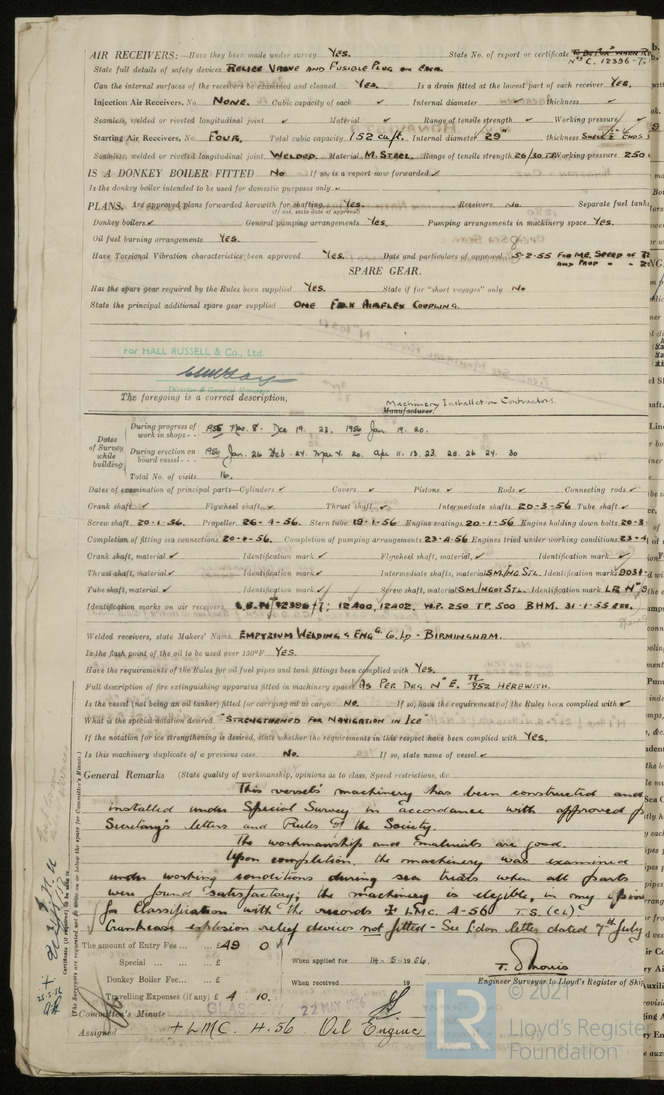 AIR RECEIVERS:—Have they been made under survey Yes. State No. of report or certificate
No C. 12396-7
State full details of safety devices Relief Valve and Fusible Plug on Each.
Can the internal surfaces of the receivers be examined and cleaned Yes. Is a drain fitted at the lowest part of each receiver Yes.
Injection Air Receivers, No. None. Cubic capacity of each ✓ Internal diameter ✓ thickness ✓
Seamless, welded or riveted longitudinal joint ✓ Material ✓ Range of tensile strength ✓ Working pressure ✓
Starting Air Receivers, No. Four. Total cubic capacity 152 cu.ft. Internal diameter 29" thickness
Seamless, welded or riveted longitudinal joint Welded. Material M. Steel. Range of tensile strength 26/30 Tn Working pressure 250
IS A DONKEY BOILER FITTED No If so, is a report now forwarded ✓
Is the donkey boiler intended to be used for domestic purposes only ✓
PLANS. Are approved plans forwarded herewith for shafting Yes. Receivers No. Separate fuel tanks
(If not, state date of approval)
Donkey boilers ✓ General pumping arrangements Yes. Pumping arrangements in machinery space Yes.
Oil fuel burning arrangements Yes.
Have Torsional Vibration characteristics been approved Yes. Date and particulars of approval 5-2-55 for M.E. Speed of
and Prop
SPARE GEAR.
Has the spare gear required by the Rules been supplied Yes. State if for "short voyages" only No
State the principal additional spare gear supplied One Fawick Airflex Coupling.
For HALL RUSSELL & Co., Ltd.
Director & General Manager
The foregoing is a correct description,
Machinery Installation Contractors.
Manufacturer.
Dates of Survey while building
During progress of work in shops - - 1955 Nov. 8. Dec 19. 23. 1956 Jan 19. 20.
During erection on board vessel - - - 1956 Jan. 26 Feb. 24. Mar 4. 20. Apr 11. 13. 23. 25. 26 24. 30
Total No. of visits 16.
Dates of examination of principal parts—Cylinders ✓ Covers ✓ Pistons ✓ Rods ✓ Connecting rods ✓
Crank shaft ✓ Flywheel shaft ✓ Thrust shaft ✓ Intermediate shafts 20-3-56 Tube shaft ✓
Screw shaft 20-1-56. Propeller 26-4-56. Stern tube 19-1-56 Engine seatings 20-1-56 Engine holding down bolts 20-3
Completion of fitting sea connections 20-4-56. Completion of pumping arrangements 23-4-56 Engines tried under working conditions 23-4
Crank shaft, material ✓ Identification mark ✓ Flywheel shaft, material ✓ Identification mark ✓
Thrust shaft, material ✓ Identification mark ✓ Intermediate shafts, material SM. Ing Stl. Identification marks 9031
Tube shaft, material ✓ Identification mark ✓ Screw shaft, material SM. Ingot Stl. Identification mark LR No
Identification marks on air receivers L.R. No 12396/7; 12400, 12402. W.P. 250 T.P. 500 BHM. 31-1-55
Welded receivers, state Makers' Name Empyrium Welding & Engg. Co. Ld - Birmingham.
Is the flash point of the oil to be used over 150°F Yes.
Have the requirements of the Rules for oil fuel pipes and tank fittings been complied with Yes.
Full description of fire extinguishing apparatus fitted in machinery spaces As Per Drg. No E. 77/852 herewith.
Is the vessel (not being an oil tanker) fitted for carrying oil as cargo No. If so, have the requirements of the Rules been complied with ✓
What is the special notation desired "Strengthened for Navigation in Ice"
If the notation for ice strengthening is desired, state whether the requirements in this respect have been complied with Yes.
Is this machinery duplicate of a previous case No. If so, state name of vessel ✓
General Remarks (State quality of workmanship, opinions as to class, Speed restrictions, &c
This vessels' machinery has been constructed and
installed under Special Survey in accordance with approved p
Secretary's letters and Rules of the Society.
The workmanship and materials are good.
Upon completion, the machinery was examined
under working conditions during sea trials when all parts
were found satisfactory; the machinery is eligible, in my opinion
for Classification with the records ✠ LMC. 4-56 T.S. (CL).
Crankcase explosion relief devices not fitted - See Ldon letter dated 7th July
The amount of Entry Fee ... £ 49 0
Special ... £ When applied for 14-5-1956.
Donkey Boiler Fee... £ When received 19
Travelling Expenses (if any) £ 4 10.
T. S. Morris
Engineer Surveyor to Lloyd's Register of Ship
Committee's Minute GLAS 22 MAY 1956
Assigned + LMC. 4.56 Oil Engine
© 2021
LR
Lloyd's Register
Foundation